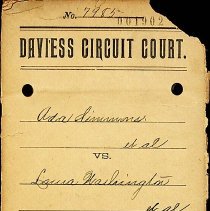 No. 7955
001902
DAVIESS CIRCUIT COURT.
Ada Simmons
et al
VS.
Laura Washington
et al